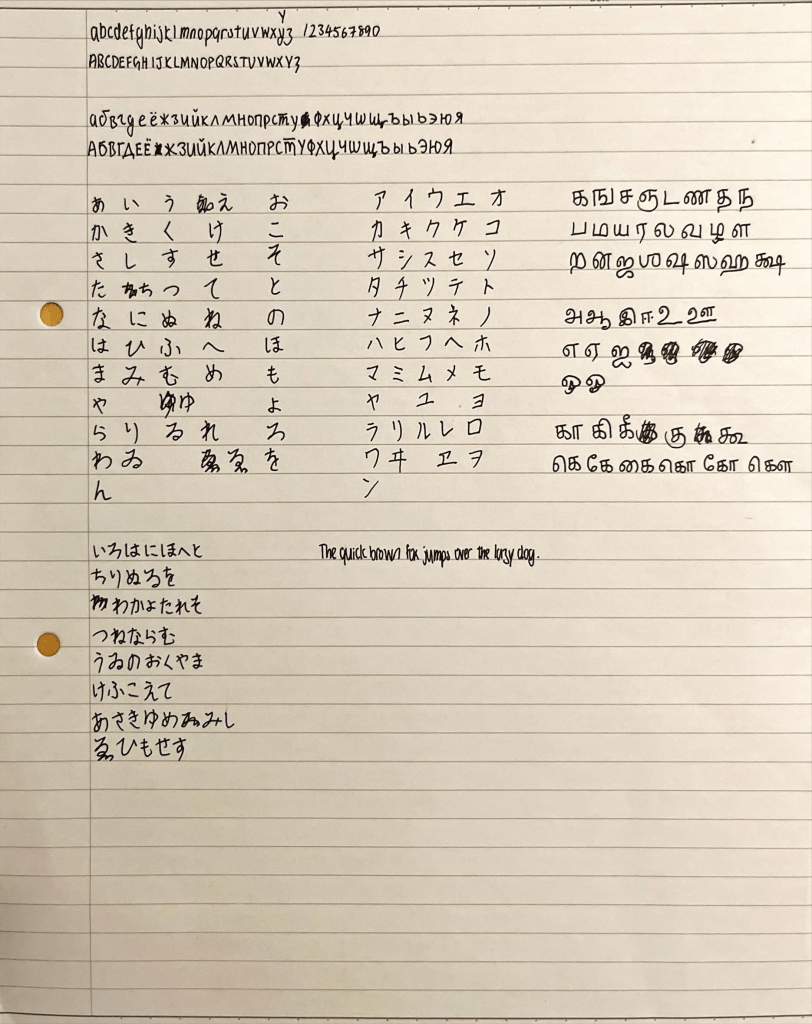 abcdefghijklmnopqrstuvwxyz 1234567890
ABCDEFGHIJKLMNOPQRSTUVWXYZ
абвгдеёжзийклмнопрстуфхцчшщъыьэюя
АБВГДЕЁЖЗИЙКЛМНОПРСТУФХЦЧШЩЪЫЬЭЮЯ
あ い う え お
か き く け こ
さ し す せ そ
た ち つ て と
な に ぬ ね の
は ひ ふ へ ほ
ま み む め も
や ゆ よ
ら り る れ ろ
わ ゐ ゑ を
ん
ア イ ウ エ オ
カ キ ク ケ コ
サ シ ス セ ソ
タ チ ツ テ ト
ナ ニ ヌ ネ ノ
ハ ヒ フ ヘ ホ
マ ミ ム メ モ
ヤ ユ ヨ
ラ リ ル レ ロ
ワ ヰ ヱ ヲ
ン
க ங ச ஞ ட ண த ந
ப ம ய ர ல வ ழ ள
ற ன ஜ ஶ ஷ ஸ ஹ க்ஷ
அ ஆ இ ஈ உ ஊ
எ ஏ ஐ
ஒ ஓ
கா கி கீ கு கூ
கெ கே கை கொ கோ கௌ
いろはにほへと
ちりぬるを
わかよたれそ
つねならむ
うゐのおくやま
けふこえて
あさきゆめみし
ゑひもせす
The quick brown fox jumps over the lazy dog.